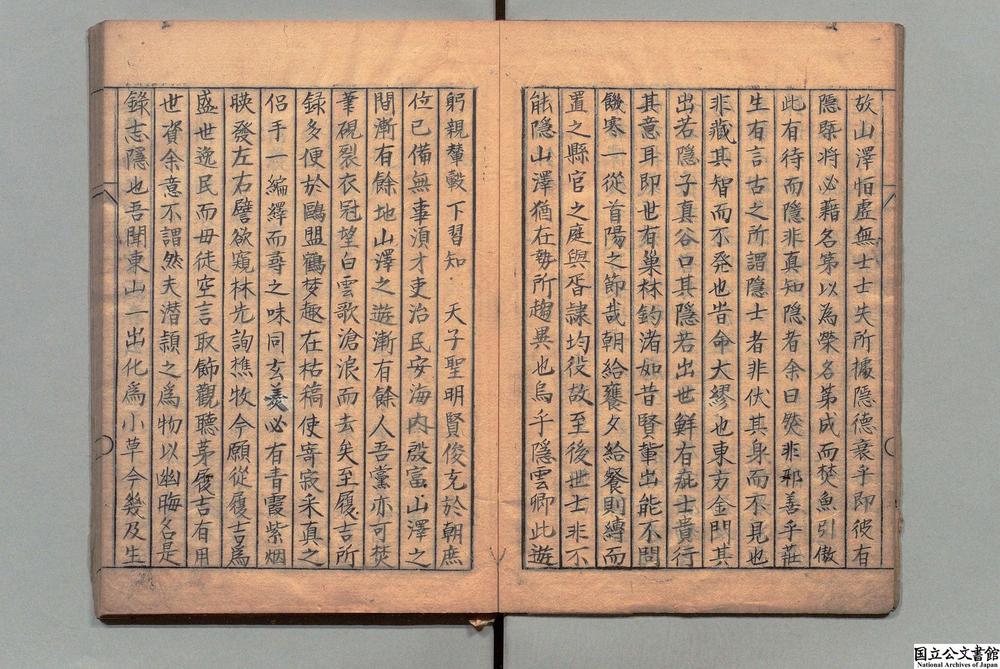 故山澤怕虛無士士失所據隱德衰乎即彼有
隱緊將必藉名第以為榮名第成而焚魚引傲
此有待而隱非真知隱者余曰唉非邪善乎莊
生有言古之所謂隱士者非伏其身而不見也
非藏其智而不発也昔命大繆也東方金門其
出若隱子真谷口其隱若出世鮮有疵士貴行
其意耳即世有巢林釣渚如昔賢輩出能不問
饑寒一從首陽之節哉朝給饔夕給餐則縛而
置之縣官之庭與胥隸均役故至後世士非不
能隱山澤猶在勢所趨異也烏乎隱雲卿此遊
躬親輦轂下習知 天子聖明賢俊充於朝庶
位已備無事湏才吏治民安海内殷富山澤之
間漸有餘地山澤之遊漸有餘人吾黨亦可焚
筆硯裂衣冠望白雲歌滄浪而去矣至履吉所
録多便於鷗盟鶴梦趣在枯稿使寄寂采真之
侣于一編繹而尋之味同玄羙必有青霞紫烟
暎發左右譬欲窺林先詢樵牧今願從履吉為
盛世逸民而毋徒空言取飾觀聽苐履吉有用
世資余意不謂然夫潜頴之爲物以幽晦名是
錄志隱也吾聞東山一出化爲小草今幾及生
国立公文書館
National Archives of Japan